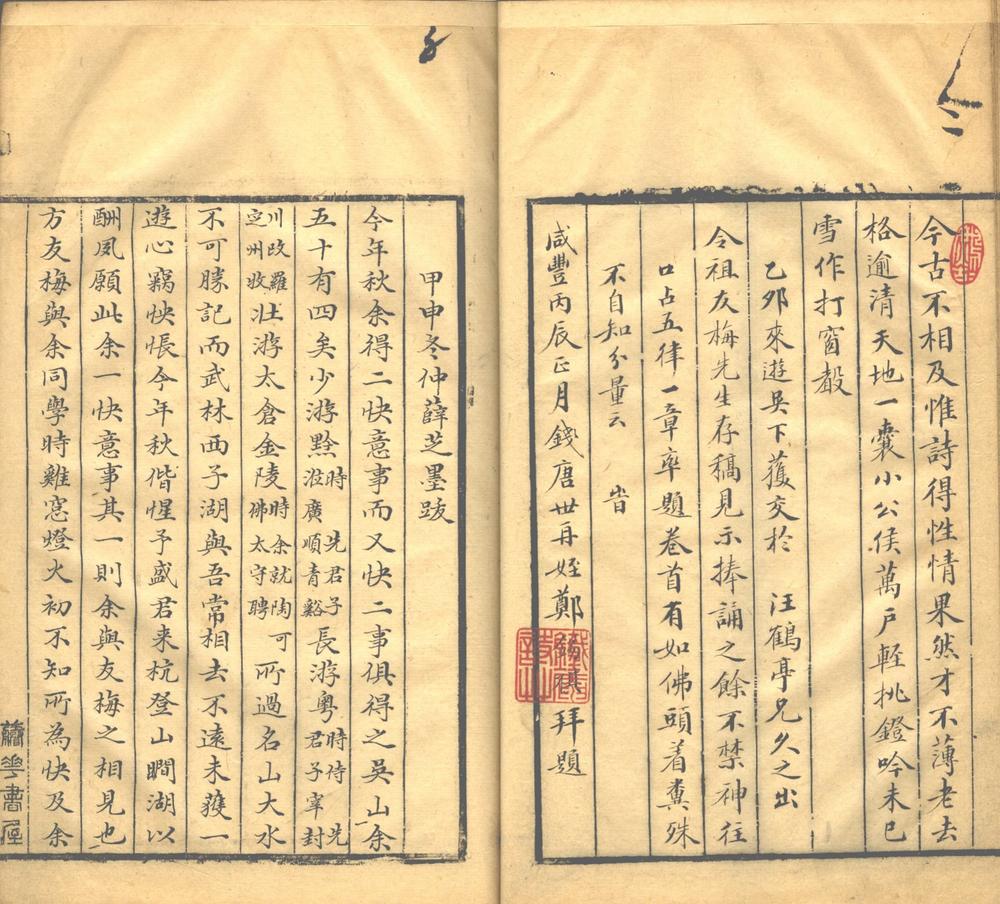 今古不相及惟詩得性情果然才不薄老去
格逾清天地一囊小公侯萬戶輕挑鐙吟未已
雪作打窗聲
乙夘來遊吳下獲交於 汪鶴亭兄久之出
令祖友梅先生存稿見示捧誦之餘不禁神往
口占五律一章率題卷首有如佛頭着糞殊
不自知分量云 旹
咸豐丙辰正月錢唐世再姪鄭 拜題
甲申冬仲薛芝墨跋
今年秋余得二快意事而又快二事俱得之吳山余
五十有四矣少游黔時先君子涖廣順青谿長游粵時侍先君子宰封
川改羅定州收壯游太倉金陵時余就陶可佛太守聘所過名山大水
不可勝記而武林西子湖與吾常相去不遠未獲一
遊心竊怏悵今年秋偕惺予盛君来杭登山瞷湖以
酬夙願此余一快意事其一則余與友梅之相見也
方友梅與余同學時雞窓燈火初不知所為快及余
書屋